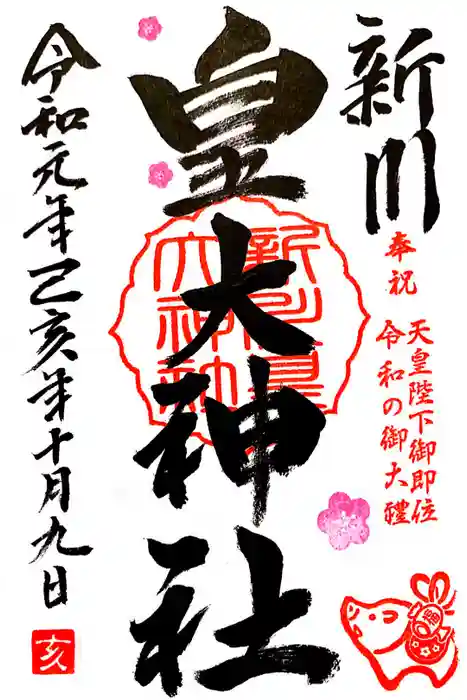 新川
皇大神社
奉祝
天皇陛下御即位
令和の御大禮
令和元年己亥年十月九日
新川皇
大神社
亥
福